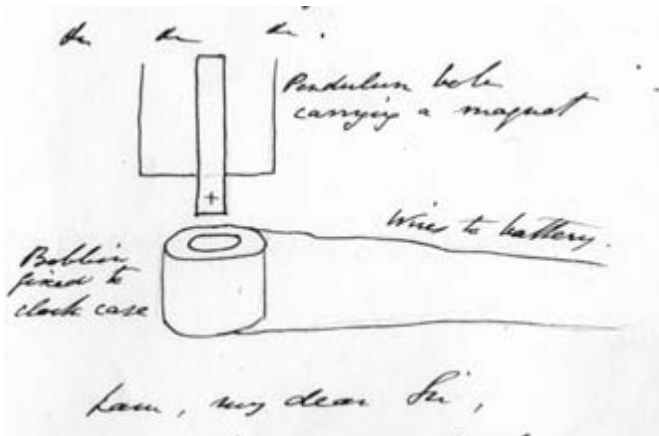 &c &c &c.
Pendulum bob
carrying a magnet
+
Wires to battery.
Bobbin
fixed to
clock case
I am, my dear Sir,